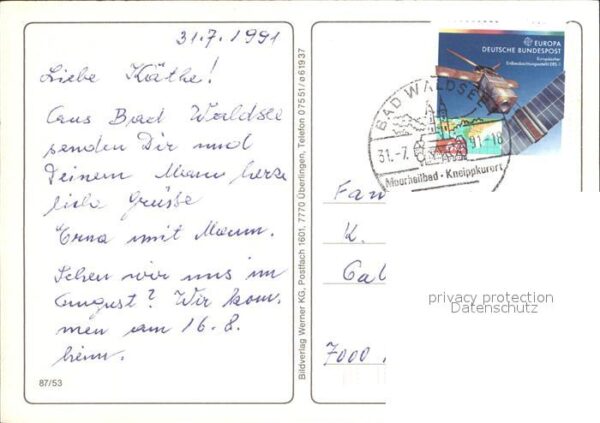 31.7.1991
Liebe Käthe!
Aus Bad Waldsee
senden Dir und
Deinem Mann herz
liche Grüsse
Erna mit Mann.
Sehen wir uns im
August? Wir kom-
men am 16.8.
heim.
87/53
Bildverlag Werner KG, Postfach 1601, 7770 Überlingen, Telefon 07551/ø61937
EUROPA
DEUTSCHE BUNDESPOST
Europäischer
Erdbeobachtungssatellit ERS-1
BAD WALDSEE
31.-7. 91-18
Moorheilbad · Kneippkurort
Fam
K.
Gal
7000
privacy protection
Datenschutz